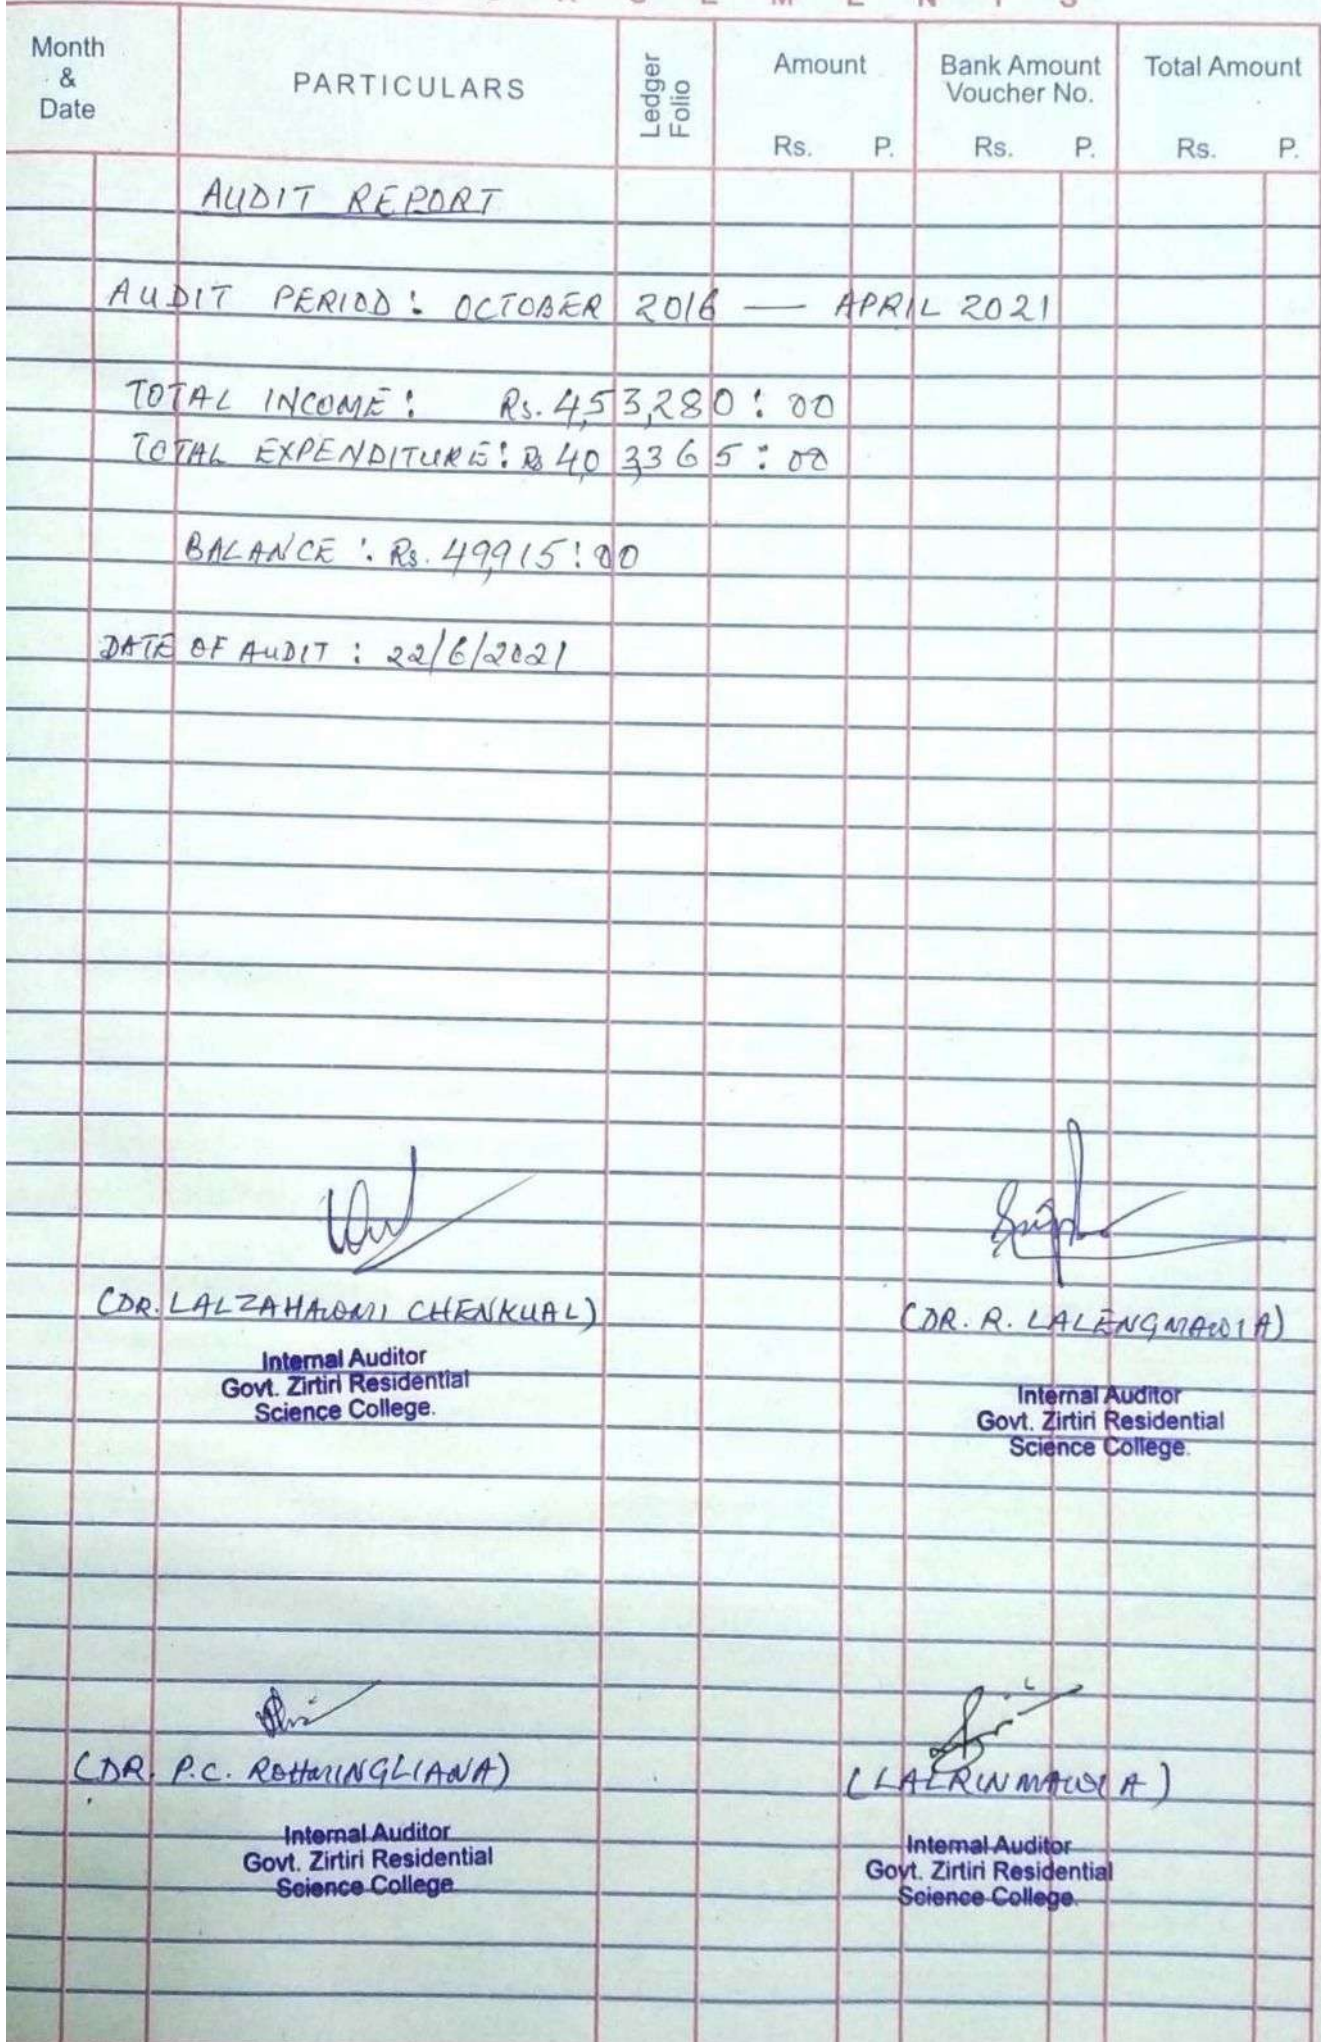 Month
&
Date
PARTICULARS
Ledger
Folio
Amount
Rs. P.
Bank Amount
Voucher No.
Rs. P.
Total Amount
Rs. P.
AUDIT REPORT
AUDIT PERIOD : OCTOBER 2016 — APRIL 2021
TOTAL INCOME : Rs. 4,53,280 : 00
TOTAL EXPENDITURE : Rs 4,03,365 : 00
BALANCE : Rs. 49,915 : 00
DATE OF AUDIT : 22/6/2021
(DR. LALZAHAWMI CHENKUAL)
Internal Auditor
Govt. Zirtiri Residential
Science College.
(DR. R. LALENGMAWIA)
Internal Auditor
Govt. Zirtiri Residential
Science College.
(DR. P.C. ROHMINGLIANA)
Internal Auditor
Govt. Zirtiri Residential
Science College
(LALRINMAWIA)
Internal Auditor
Govt. Zirtiri Residential
Science College.